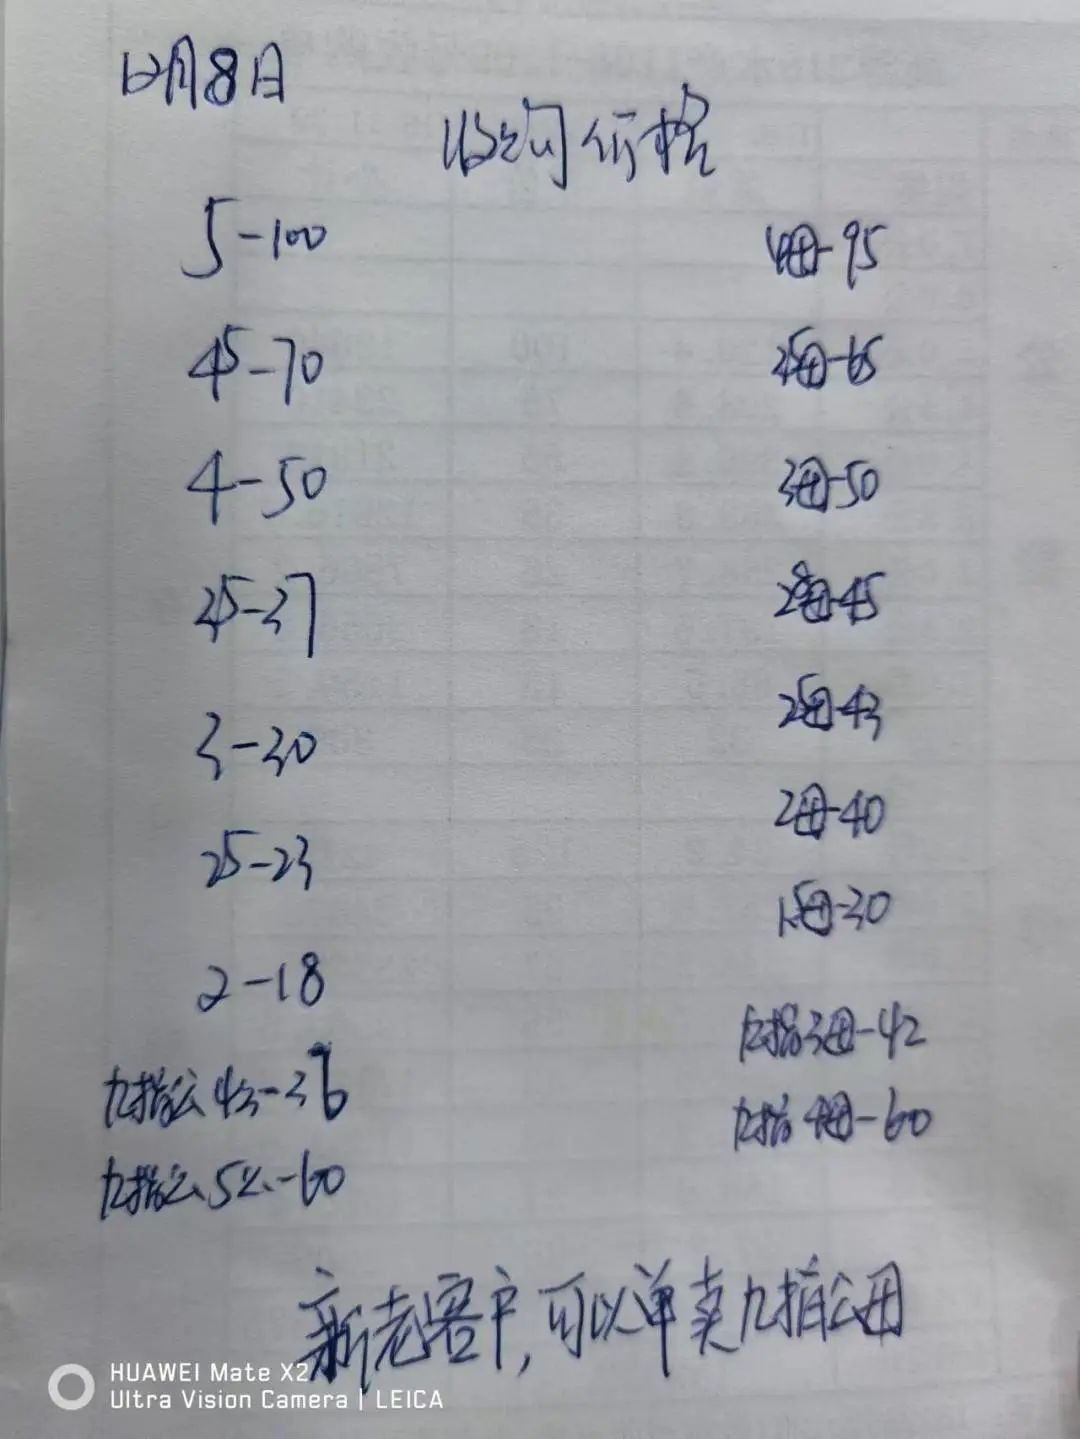 12月8日
收购价格
5-100 4母-95
45-70 35母-65
4-50 3母-50
35-37 28母-45
3-30 25母-43
25-23 2母-40
2-18 15母-30
九指3母-42
九指公4两-36
九指4母-60
九指公5两-60
新老客户,可以单卖九指公母
HUAWEI Mate X2
Ultra Vision Camera | LEICA